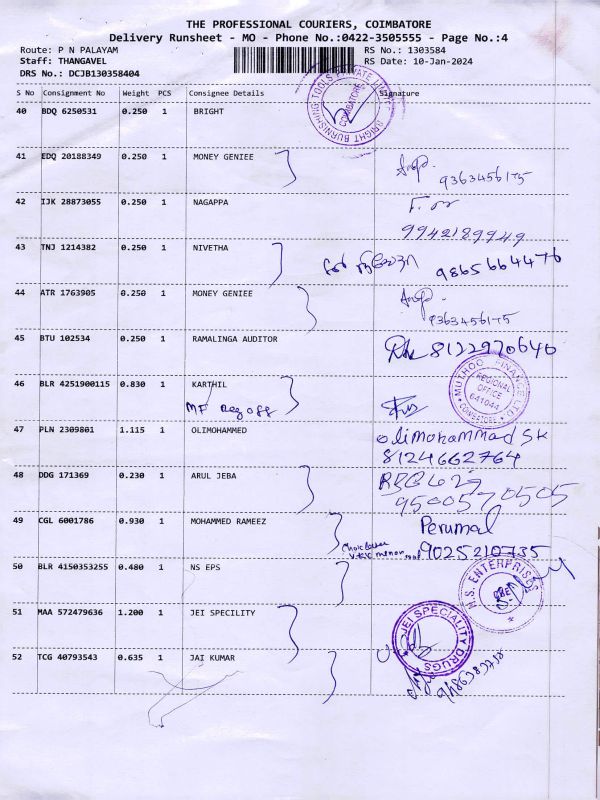 THE PROFESSIONAL COURIERS, COIMBATORE
Delivery Runsheet - MO - Phone No.:0422-3505555 - Page No.:4
Route: P N PALAYAM RS No.: 1303584
Staff: THANGAVEL RS Date: 10-Jan-2024
DRS No.: DCJB130358404
S No Consignment No Weight PCS Consignee Details Signature
40 BDQ 6250531 0.250 1 BRIGHT
BRIGHT BURNISHING TOOLS PRIVATE LIMITED COIMBATORE
41 EDQ 20188349 0.250 1 MONEY GENIEE
9363456175
42 IJK 28873055 0.250 1 NAGAPPA
9942189949
43 TNJ 1214382 0.250 1 NIVETHA
9865664476
44 ATR 1763905 0.250 1 MONEY GENIEE
9363456175
45 BTU 102534 0.250 1 RAMALINGA AUDITOR
8122970640
46 BLR 4251900115 0.830 1 KARTHIL
MF Reg off
MUTHOOT FINANCE LTD. REGIONAL OFFICE 641044 COIMBATORE
47 PLN 2309801 1.115 1 OLIMOHAMMED
olimohammad Sk
8124662764
48 DDG 171369 0.230 1 ARUL JEBA
9500570505
49 CGL 6001786 0.930 1 MOHAMMED RAMEEZ
Perumal
9025210735
50 BLR 4150353255 0.480 1 NS EPS
ENTERPRISES
51 MAA 572479636 1.200 1 JEI SPECILITY
JEI SPECIALITY DRUGS
52 TCG 40793543 0.635 1 JAI KUMAR